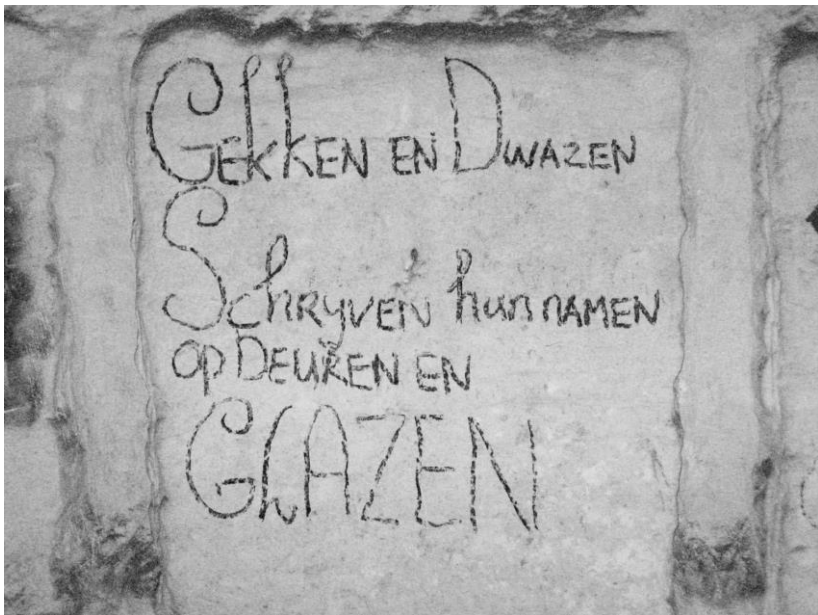 GEKKEN EN DWAZEN
SchRyVEN hun NAMEN
op DEUREN EN
GLAZEN